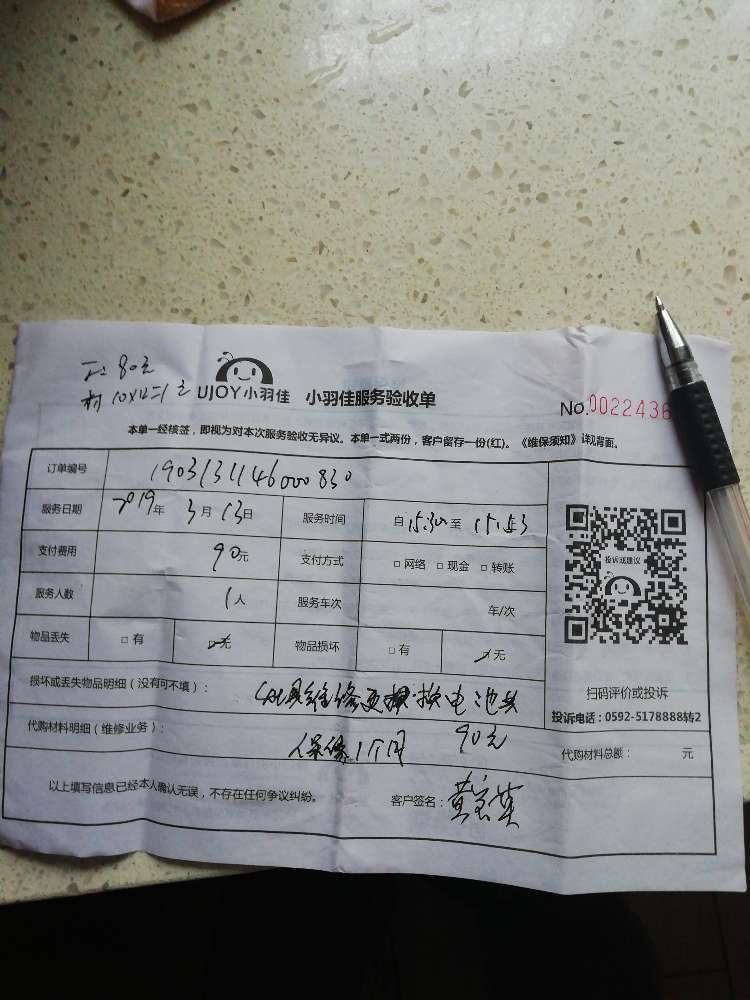 工 80元
材 10X1=1元
UJOY小羽佳 小羽佳服务验收单
No.0022436
本单一经核签，即视为对本次服务验收无异议。本单一式两份，客户留存一份(红)。《维保须知》详见背面。
订单编号 1903131146000830
服务日期 2019年 3月13日 服务时间 自15:30至17:53
支付费用 90元 支付方式 □网络 □现金 □转账
投诉或建议
服务人数 1人 服务车次 车/次
物品丢失 □有 □无 物品损坏 □有 □无
损坏或丢失物品明细（没有可不填）： 灶具维修更换电池共
扫码评价或投诉
投诉电话：0592-5178888转2
代购材料明细（维修业务）： 90元
保修1个月
代购材料总额： 元
以上填写信息已经本人确认无误，不存在任何争议纠纷。 客户签名：黄宝英